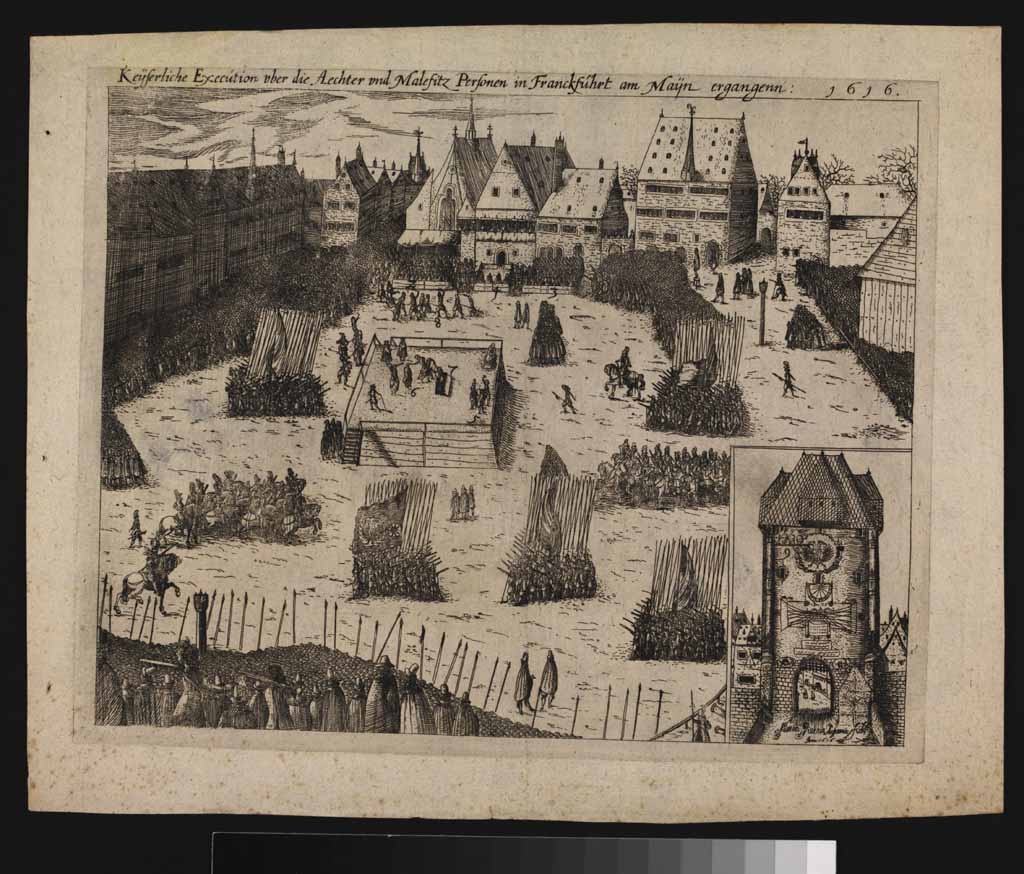 Keÿserliche Execution vber die Aechter vnd Malefitz Personen in Franckfuhrt am Maÿn ergangenn: 1616.